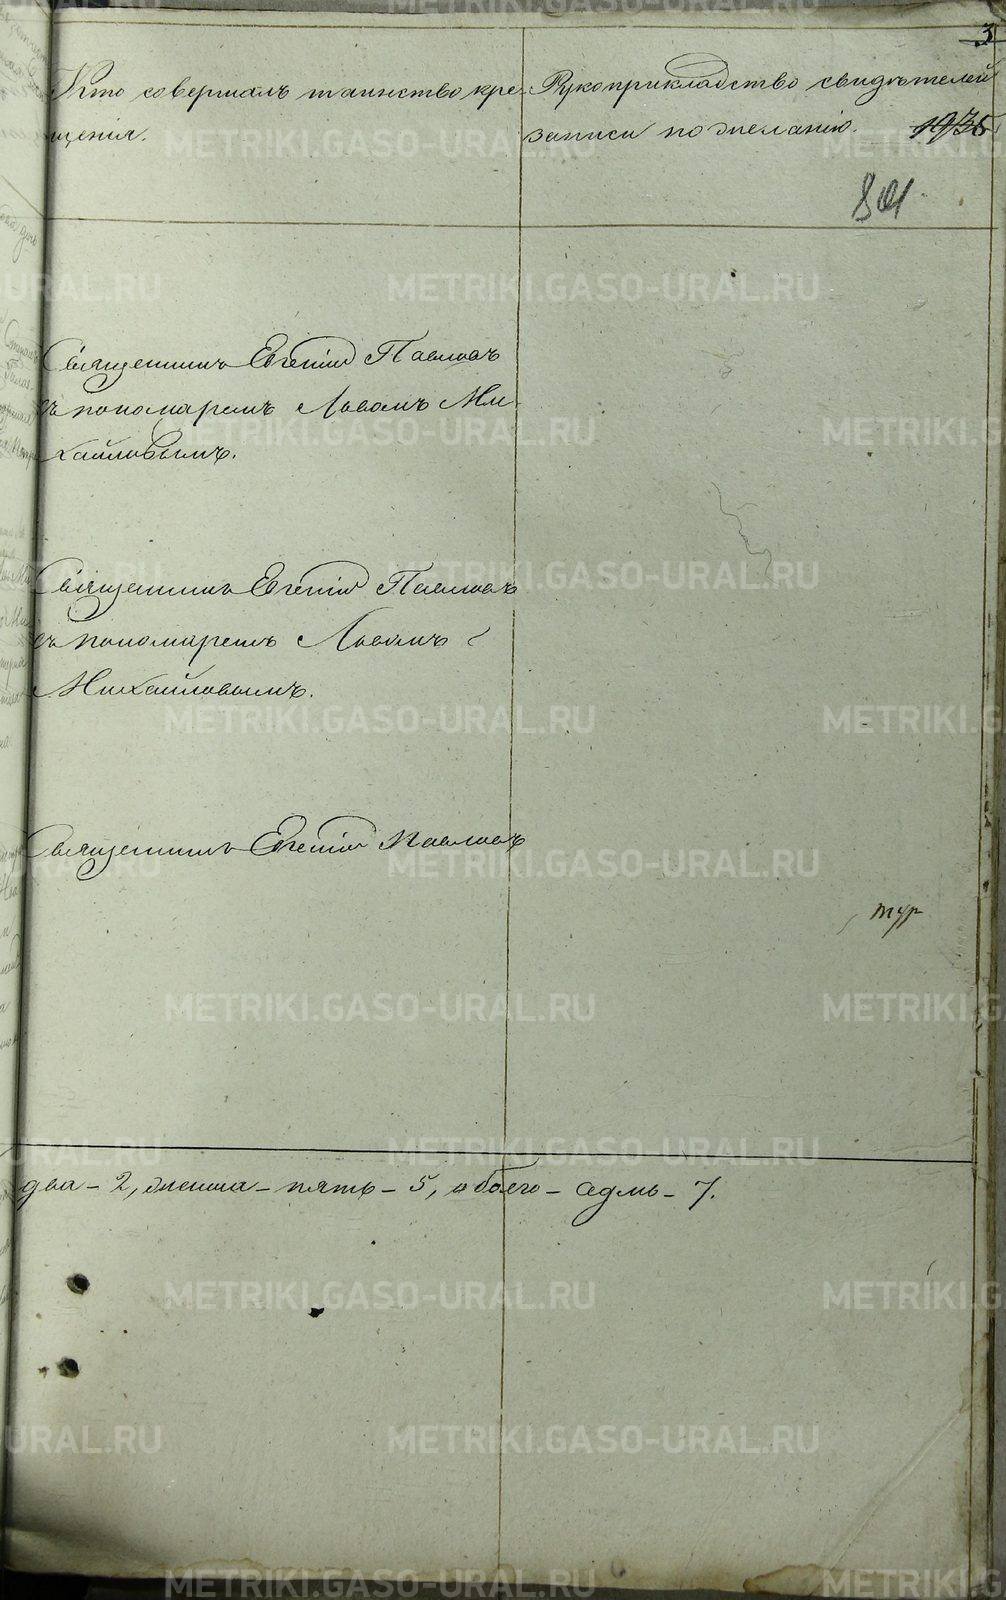 3
Кто совершалъ таинство кре-
щенія.
Рукоприкладство свидѣтелей
записи по желанію.
801
Священникъ Евгеній Павловъ
съ пономаремъ Львомъ Ми-
хайловымъ.
Священникъ Евгеній Павловъ
съ пономаремъ Львомъ
Михайловымъ.
Священникъ Евгеній Павловъ
тур
два – 2, женска – пять – 5, обоего – седмь – 7.
METRIKI.GASO-URAL.RU